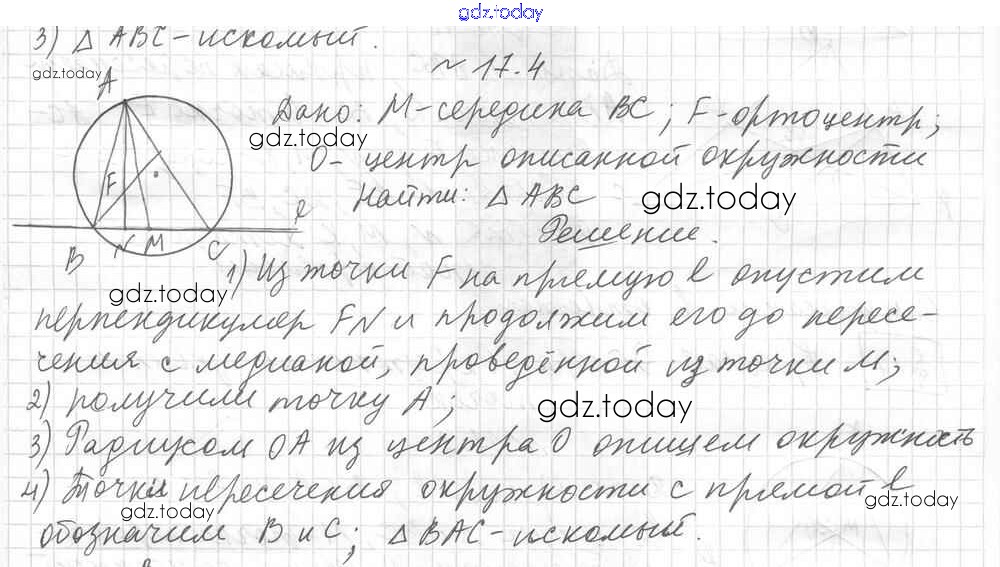 gdz.today
3) △ ABC - искомый.
gdz.today
~ 17.4
A
Дано: M - середина BC; F - ортоцентр;
gdz.today
O - центр описанной окружности
Найти: △ ABC -
gdz.today
F
l
B N M C
Решение.
1) Из точки F на прямую l опустим
gdz.today
перпендикуляр FN и продолжим его до пересе-
чения с медианой, проведённой из точки M;
2) получили точку A;
gdz.today
3) Радиусом OA из центра O опишем окружность
4) Точки пересечения окружности с прямой l
gdz.today
gdz.today
обозначим B и C; △ BAC - искомый.